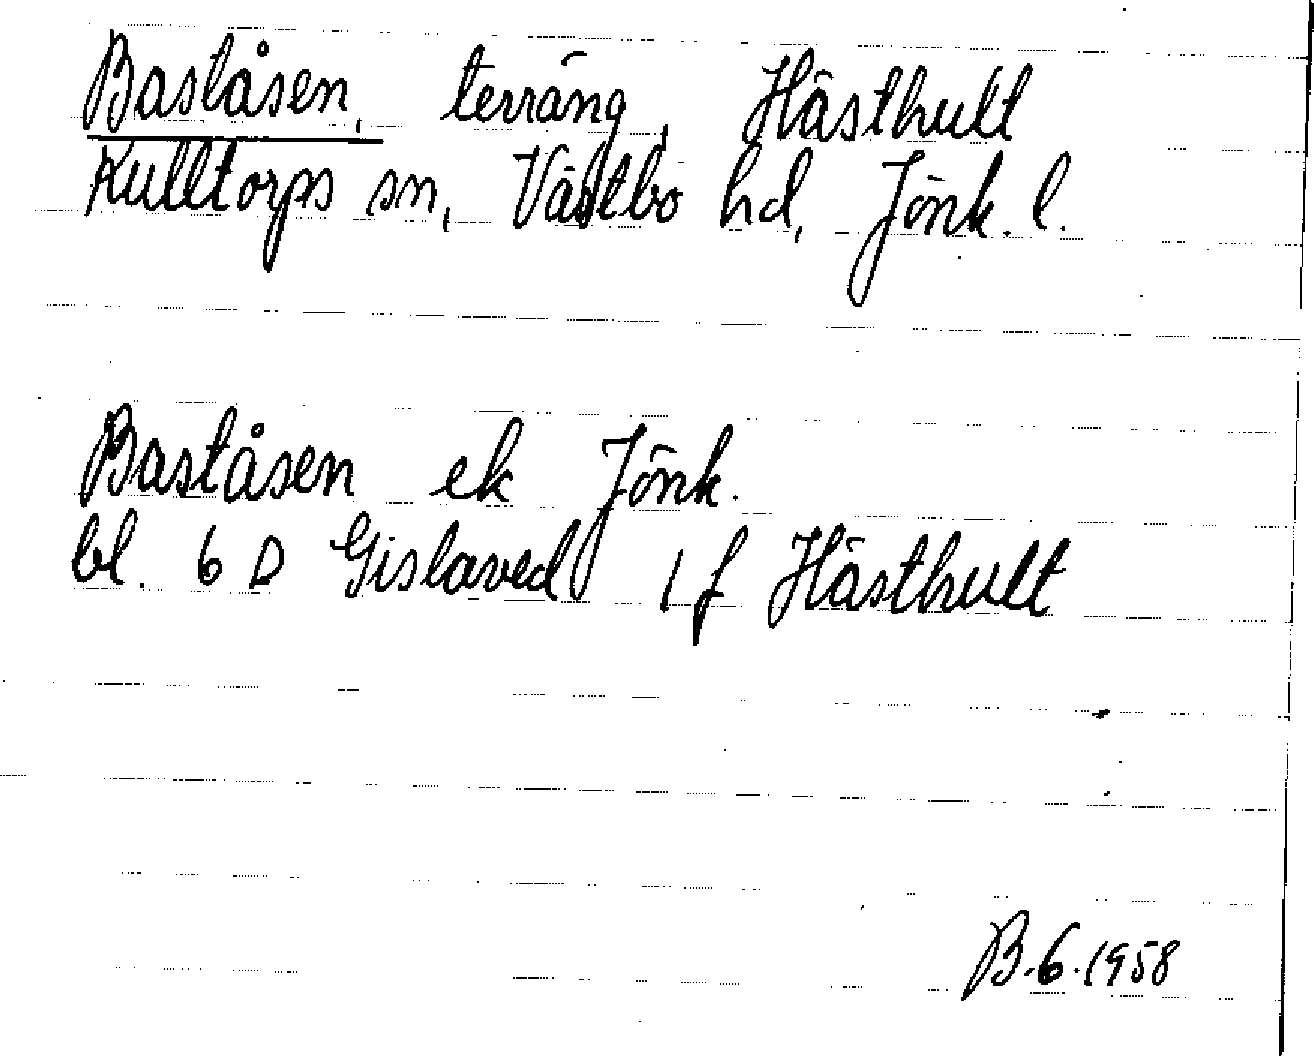 Baståsen, terräng, Hästhult
Kulltorps sn, Västbo hd, Jönk. l.
Baståsen ek Jönk.
bl. 6 D Gislaved 1 f Hästhult
B.6.1958